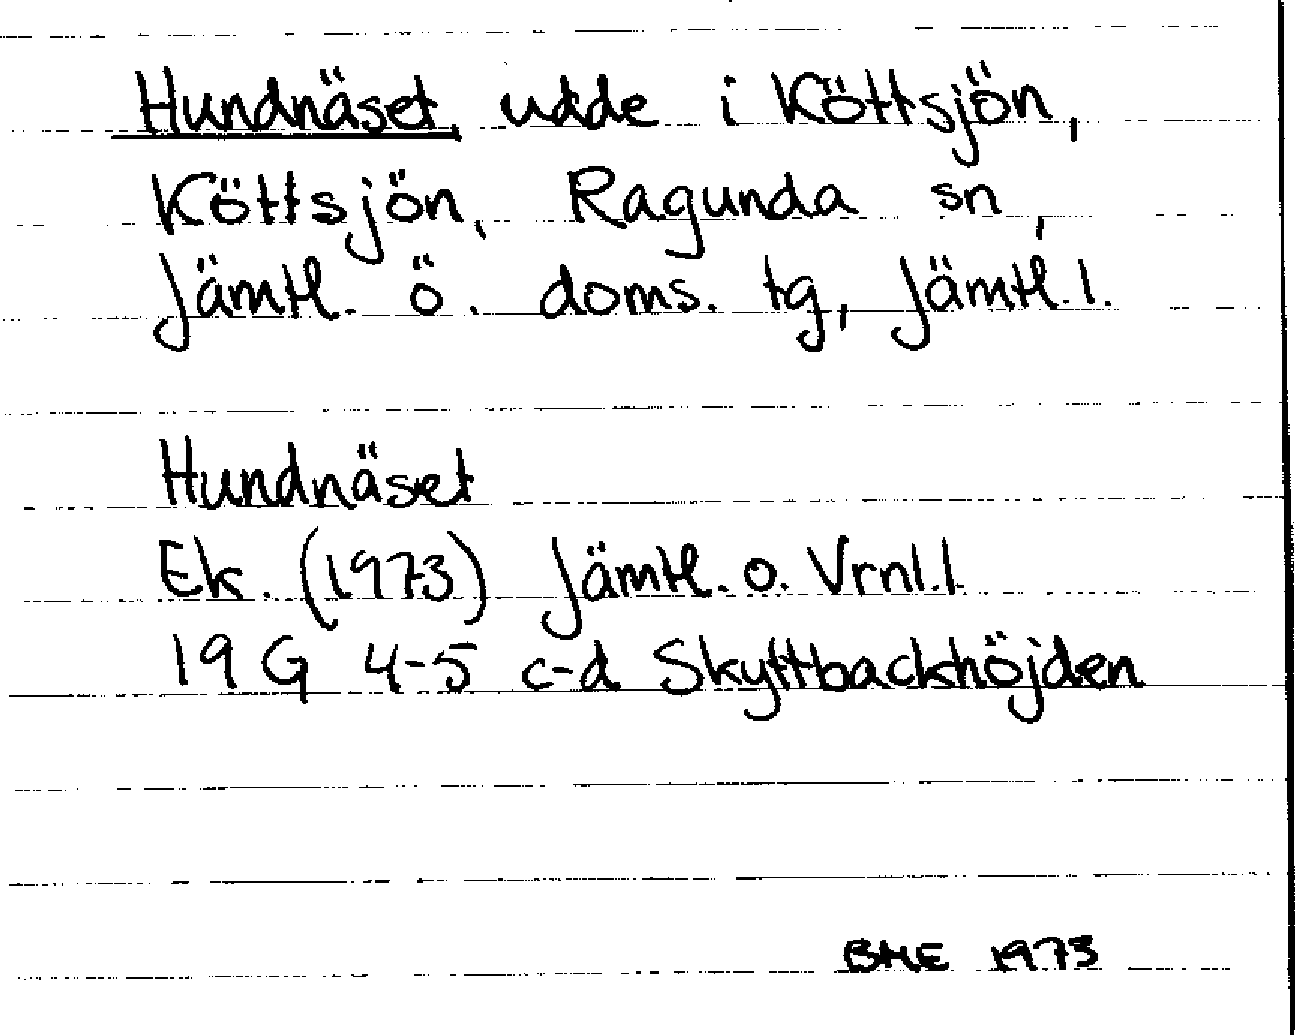 Hundnäset, udde i Köttsjön,
Köttsjön, Ragunda sn,
Jämtl. ö. doms. tg, Jämtl. l.
Hundnäset
Ek. (1973) Jämtl. o. Vrnl. l
19 G 4-5 c-d Skyttbackhöjden
BME 1973